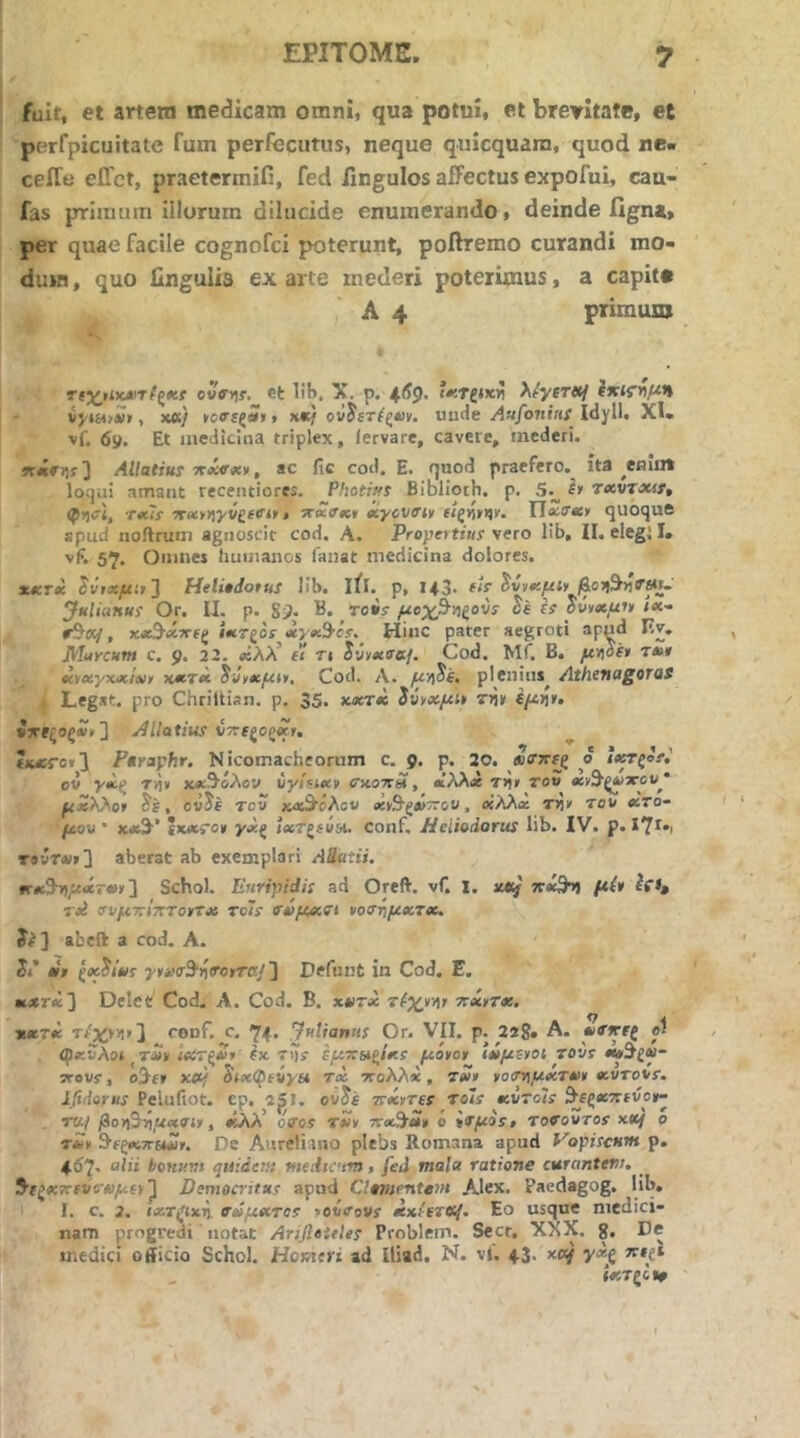 EPITOME. 7
fuit, et artem medicam omni, qua potui, et brevitate, et
perſpicuitate ſum perſecutus, neque quicquam, quod ne-
ceſſe eſſet, praetermiſi, ſed ſingulos affectus expoſui, cau-
ſas primum illorum dilucide enumerando, deinde ſigna,
per quae facile cognoſci poterunt, poſtremo curandi mo-
dum, quo ſingulis ex arte mederi poterimus, a capite
A 4 primum
τεχνικωτέρας οὔσης. et lib. X. p. 469. ἰατρικὴ λέγεται ἐπιςήμη
ὑγιεινῶν, καὶ νοσερῶν, καὶ οὐδετέρων. unde Auſonius Idyll. XI.
vſ. 69. Et medicina triplex, ſervare, cavere, mederi.
πάσης] Allatius πᾶσαν, ac ſic cod. E. quod praefero. ita enim
loqui amant recentiores. Photius Biblioth. p. 5. ἐν ταύταις,
φησὶ, ταῖς πανηγύρεσιν, πᾶσαν ἄγουσιν εἰρήνην. Πᾶσαν quoque
apud noſtrum agnoscit cod. A. Propertius vero lib. II. eleg. I.
vſ. 57. Omnes humanos ſanat medicina dolores.
κατὰ δύναμιν] Heliodorus lib. III. p. 143. εἰς δύναμιν βοηθήσειν.
Julianus Or. II. p. 89. B. τοὺς μοχθηροὺς δὲ ἐς δύναμιν ἰᾶ-
σθαι, καθάπερ ἰατρὸς ἀγαθός. Hinc pater aegroti apud Ev.
Marcum c. 9. 22. ἀλλ' εἴ τι δύνασαι. Cod. Mſ. B. μηδὲν τῶν
ἀναγκαίων κατὰ δύναμιν. Cod. A. μηδὲ. plenius Athenagoras
Legat. pro Chriſtian. p. 35. κατὰ δύναμιν τὴν ἐμήν.
ὑπερορῶν] Allatius ὑπερορᾶν.
ἕκαςον] Paraphr. Nicomacheorum c. 9. p. 20. ὥσπερ ὁ ἰατρός.
οὐ γὰρ τὴν καθόλου ὑγίειαν σκοπεῖ, ἀλλὰ τὴν τοῦ ἀνθρώπου·
μᾶλλον δὲ, οὐδὲ τοῦ καθόλου ἀνθρώπου, ἀλλὰ τὴν τοῦ ἀτό-
μου· καθ' ἕκαςον γὰρ ἰατρεύει. conf. Heliodorus lib. IV. p. 171.
τούτων] aberat ab exemplari Allatii.
παθημάτων] Schol. Euripidis ad Oreſt. vſ. 1. καὶ πάθη μέν ἐςι,
τὰ συμπίπτοντα τοῖς σώμασι νοσήματα.
δὲ] abeſt a cod. A.
δι' ὧν ῥᾳδίως γνωσθήσονται] Deſunt in Cod. E.
κατὰ] Delet Cod. A. Cod. B. κατὰ τέχνην πάντα.
κατὰ τέχνην] conf. c. 74. Julianus Or. VII. p. 228. A. ὥσπερ οἱ
φαῦλοι τῶν ἰατρῶν ἐκ τῆς ἐμπειρίας μόνον ἰώμενοι τοὺς ἀνθρώ-
πους, ὅθεν καὶ διαφεύγει τὰ πολλὰ, τῶν νοσημάτων αὐτούς.
Iſidorus Peluſiot. ep. 251. οὐδὲ πάντες τοῖς αὐτοῖς θεραπεύον-
ται βοηθήμασιν, ἀλλ' ὅσος τῶν παθῶν ὁ ἐσμὸς, τοσοῦτος καὶ ὁ
τῶν θεραπειῶν. De Aureliano plebs Romana apud Vopiscum p.
467. alii bonum quidem medicum, ſed mala ratione curantem.
θεραπεύσωμεν] Democritus apud Clementem Alex. Paedagog. lib.
I. c. 2. ἰατρικὴ σώματος νούσους ἀκέεται. Eo usque medici-
nam progredi notat Ariſtoteles Problem. Sect. XXX. 8. De
medici officio Schol. Homeri ad Iliad. N. vſ. 43. καὶ γὰρ περὶ
ἰατρῶν